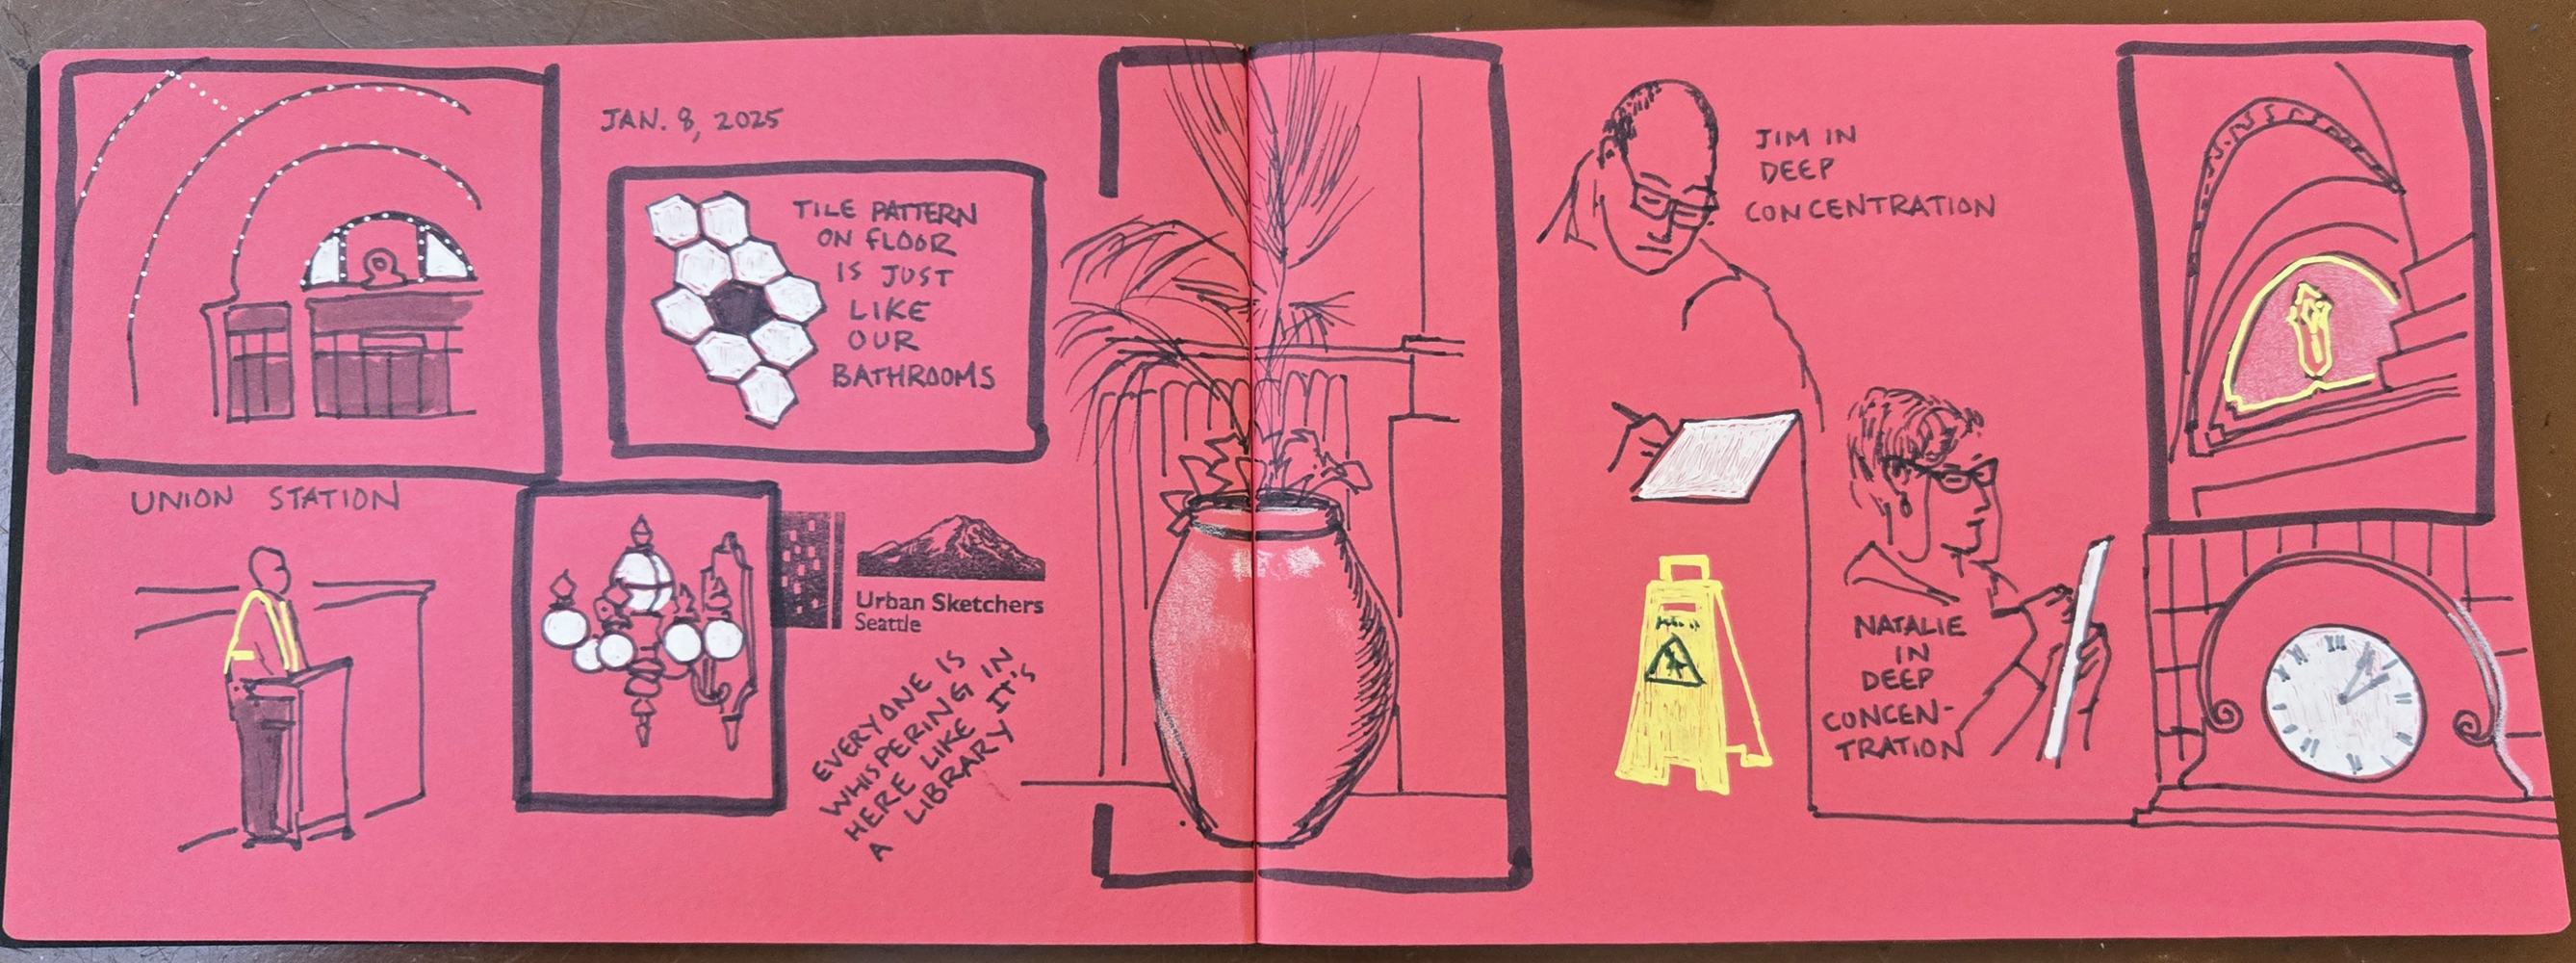 JAN. 8, 2025
TILE PATTERN
ON FLOOR
IS JUST
LIKE
OUR
BATHROOMS
UNION STATION
Urban Sketchers
Seattle
EVERYONE IS
WHISPERING IN
HERE LIKE IT'S
A LIBRARY
JIM IN
DEEP
CONCENTRATION
NATALIE
IN
DEEP
CONCEN-
TRATION